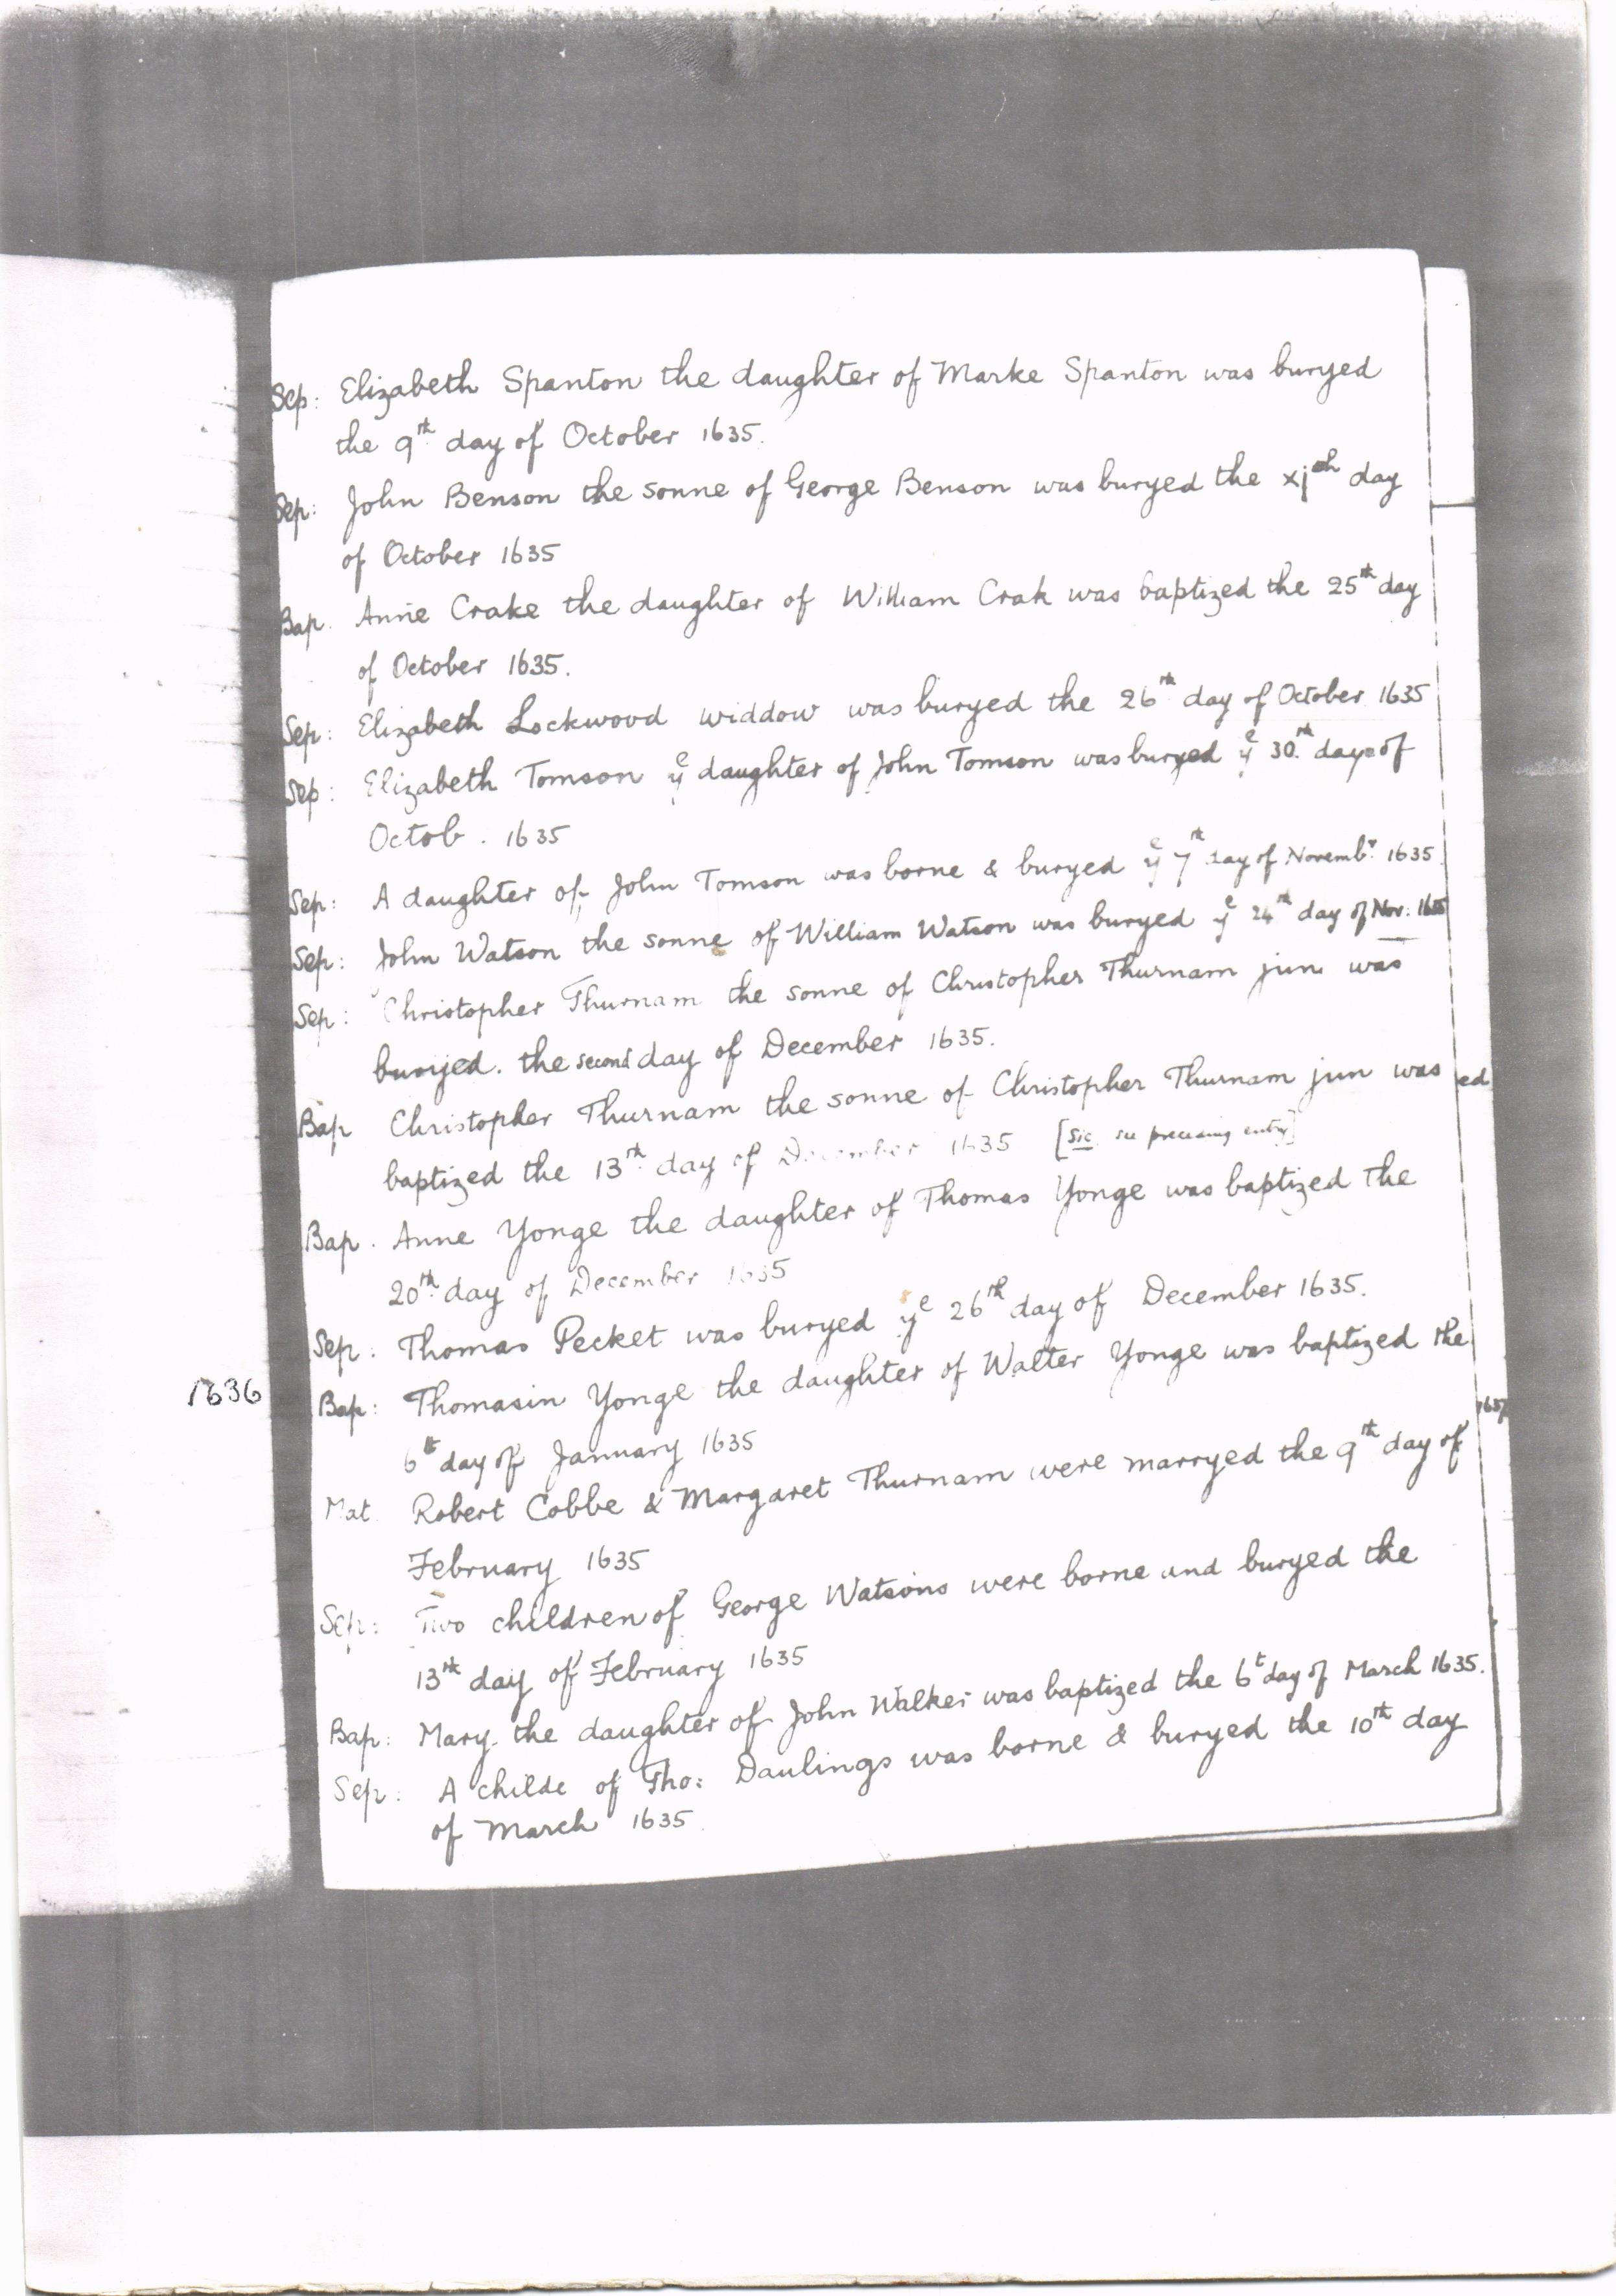 Sep: Elizabeth Spanton the daughter of Marke Spanton was buryed
the 9th day of October 1635.
Sep: John Benson the sonne of George Benson was buryed the xjth day
of October 1635
Bap. Anne Crake the daughter of William Crak was baptized the 25th day
of October 1635.
Sep: Elizabeth Lockwood widdow was buryed the 26th day of October 1635
Sep: Elizabeth Tomson ye daughter of John Tomson was buryed ye 30th day of
Octob. 1635
Sep: A daughter of John Tomson was borne & buryed ye 7th day of Novembr. 1635.
Sep: John Watson the sonne of William Watson was buryed ye 24th day of Nov: 1635
Sep: Christopher Thurnam the sonne of Christopher Thurnam jun was
buryed. the second day of December 1635.
Bap Christopher Thurnam the sonne of Christopher Thurnam jun was
ed
baptized the 13th day of December 1635 [Sic see preceding entry]
Bap. Anne Yonge the daughter of Thomas Yonge was baptized the
20th day of December 1635
Sep: Thomas Pecket was buryed ye 26th day of December 1635.
1636 Bap: Thomasin Yonge the daughter of Walter Yonge was baptized the
6th day of January 1635
Mat. Robert Cobbe & Margaret Thurnam were marryed the 9th day of
February 1635
Sep: Two children of George Watsons were borne and buryed the
13th day of February 1635
Bap: Mary the daughter of John Walker was baptized the 6t day of March 1635.
Sep: A childe of Tho: Daulings was borne & buryed the 10th day
of March 1635